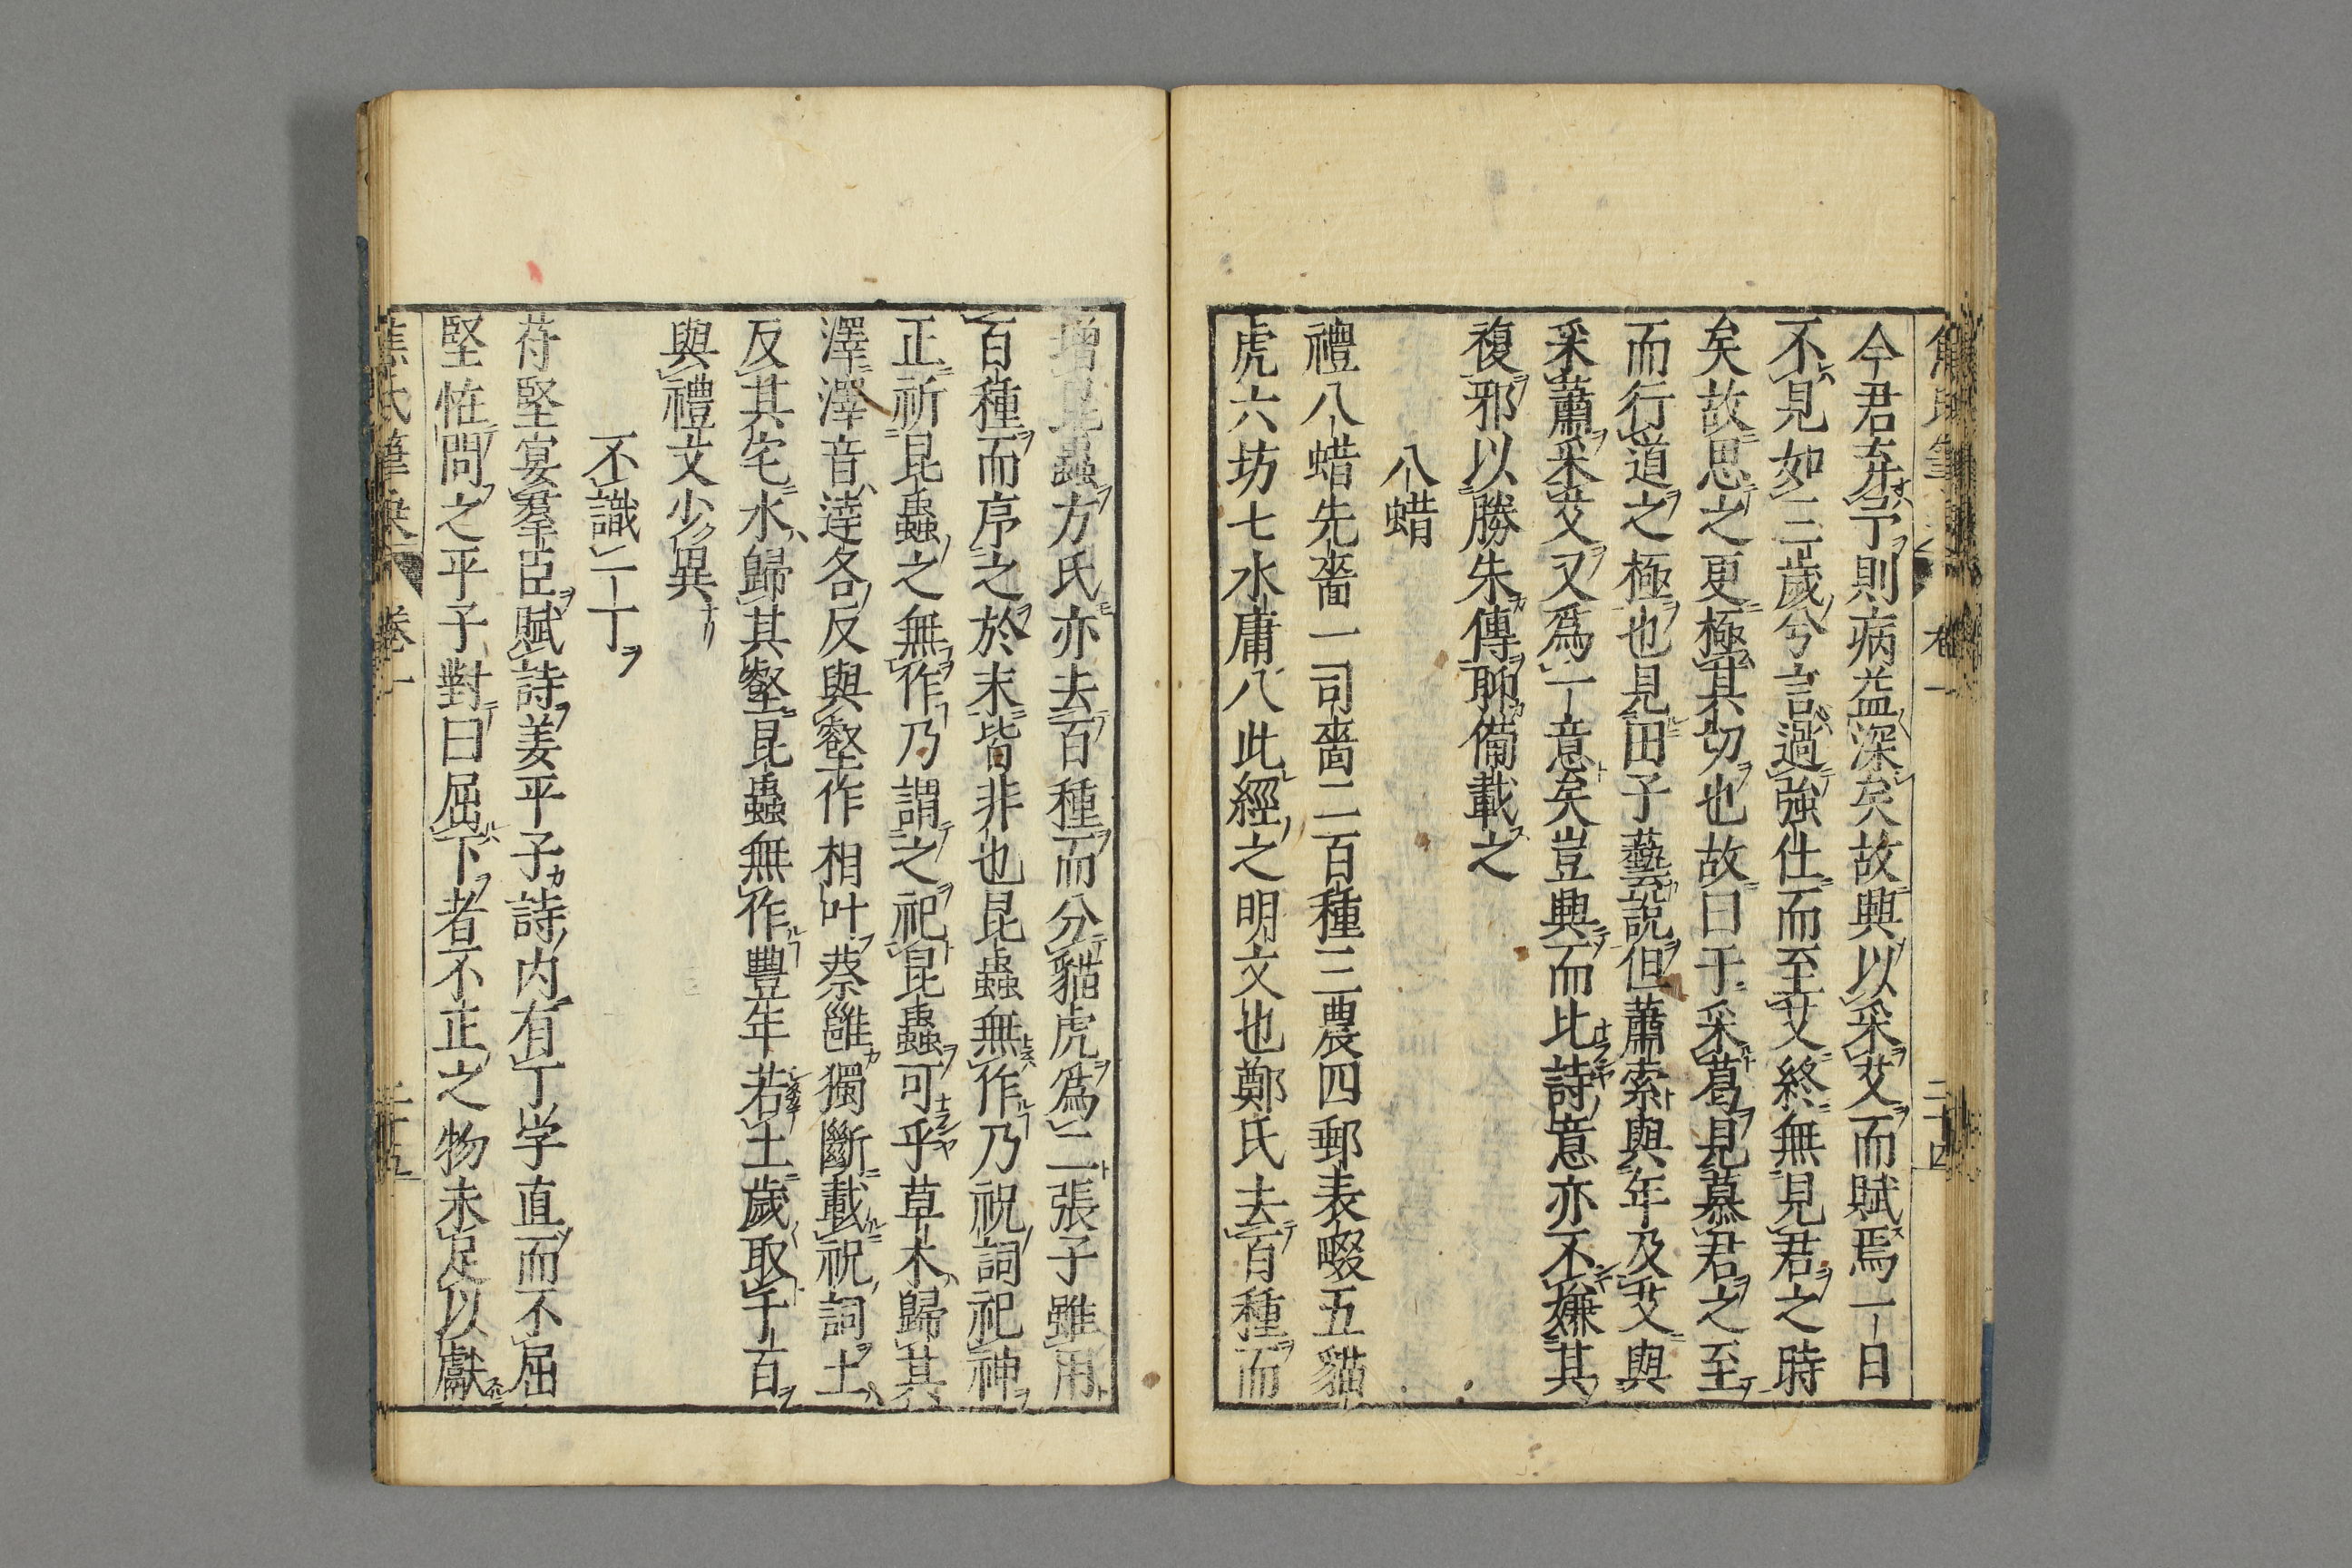 今君弃予則病益深矣故興以采艾而賦焉一日
不見如三歲兮言過強仕而至艾終無見君之時
矣故思之更極其切也故曰于采葛見慕君之至
而行道之極也見田子藝說但蕭索與年及艾與
采蕭采艾又爲一意矣豈興而比詩意亦不嫌其
複邪以勝朱傳聊備載之
八蜡
禮八蜡先嗇一司嗇二百種三農四郵表畷五貓
虎六坊七水庸八此經之明文也鄭氏去百種而
增昆蟲方氏亦去百種而分貓虎爲二張子雖用
百種而序之於末皆非也昆蟲無作乃祝詞祀神
正祈昆蟲之無作乃謂之祀昆蟲可乎草木歸其
澤澤音達各反與壑作相叶蔡邕獨斷載祝詞土
反其宅水歸其壑昆蟲無作豐年若土歲取千百
與禮文少異
不識一丁
苻堅宴羣臣賦詩姜平子詩內有丁字直而不屈
堅怪問之平子對曰屈下者不正之物未足以獻
焦氏筆乘 卷一 二十五